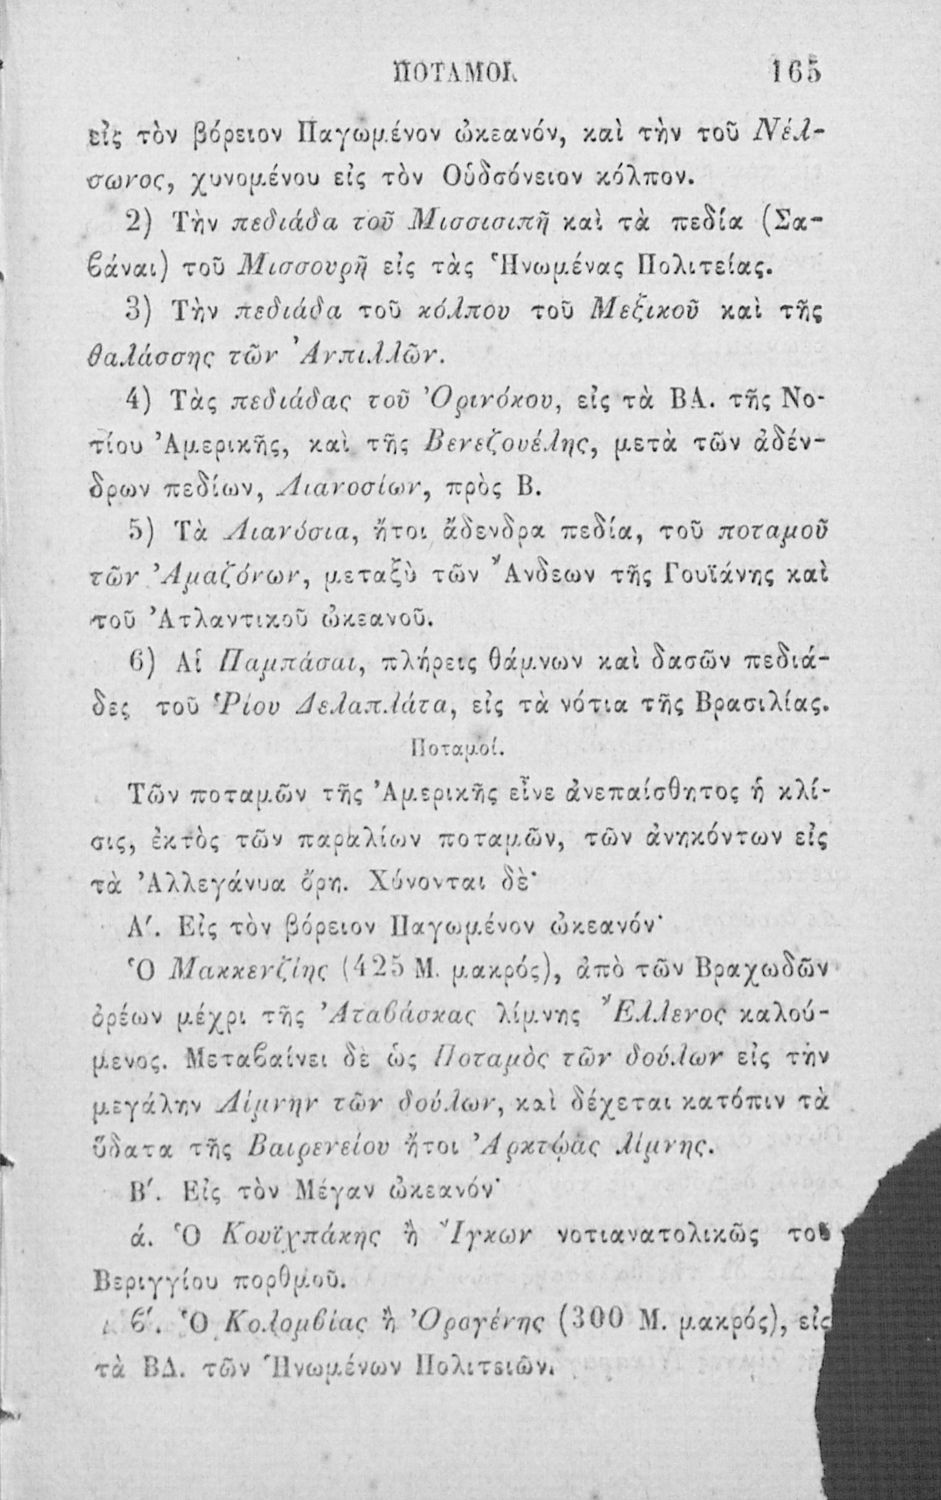 ΠΟΤΑΜΟΙ. 165
εἰς τὸν βόρειον Παγωμένον ὠκεανόν, καὶ τὴν τοῦ Νέλ-
σωνος, χυνομένου εἰς τὸν Οὑδσόνειον κόλπον.
2) Τὴν πεδιάδα τοῦ Μισσισιπῆ καὶ τὰ πεδία (Σα-
βάναι) τοῦ Μισσουρῆ εἰς τὰς Ἡνωμένας Πολιτείας.
3) Τὴν πεδιάδα τοῦ κόλπου τοῦ Μεξικοῦ καὶ τῆς
θαλάσσης τῶν Ἀντιλλῶν.
4) Τὰς πεδιάδας τοῦ Ὀρινόκου, εἰς τὰ ΒΑ. τῆς Νο-
τίου Ἀμερικῆς, καὶ τῆς Βενεζουέλης, μετὰ τῶν ἀδέν-
δρων πεδίων, Λιανοσίων, πρὸς Β.
5) Τὰ Λιανόσια, ἤτοι ἄδενδρα πεδία, τοῦ ποταμοῦ
τῶν Ἀμαζόνων, μεταξὺ τῶν Ἄνδεων τῆς Γουϊάνης καὶ
τοῦ Ἀτλαντικοῦ ὠκεανοῦ.
6) Αἱ Παμπάσαι, πλήρεις θάμνων καὶ δασῶν πεδιά-
δες τοῦ Ῥίου Δελαπλάτα, εἰς τὰ νότια τῆς Βρασιλίας.
Ποταμοί.
Τῶν ποταμῶν τῆς Ἀμερικῆς εἶνε ἀνεπαίσθητος ἡ κλί-
σις, ἐκτὸς τῶν παραλίων ποταμῶν, τῶν ἀνηκόντων εἰς
τὰ Ἀλλεγάνυα ὄρη. Χύνονται δὲ·
Α′. Εἰς τὸν βόρειον Παγωμένον ὠκεανόν·
Ὁ Μακκενζίης (425 Μ. μακρός), ἀπὸ τῶν Βραχωδῶν
ὀρέων μέχρι τῆς Ἀταβάσκας λίμνης Ἔλλενος καλού-
μενος. Μεταβαίνει δὲ ὡς Ποταμὸς τῶν δούλων εἰς τὴν
μεγάλην Λίμνην τῶν δούλων, καὶ δέχεται κατόπιν τὰ
ὕδατα τῆς Βαιρενείου ἤτοι Ἀρκτῴας λίμνης.
Β′. Εἰς τὸν Μέγαν ὠκεανόν·
ά. Ὁ Κουϊχπάκης ἢ Ἴγκων νοτιανατολικῶς τοῦ
Βεριγγίου πορθμοῦ.
β′. Ὁ Κολομβίας ἢ Ὀρογένης (300 Μ. μακρός), εἰς
τὰ ΒΔ. τῶν Ἡνωμένων Πολιτειῶν.